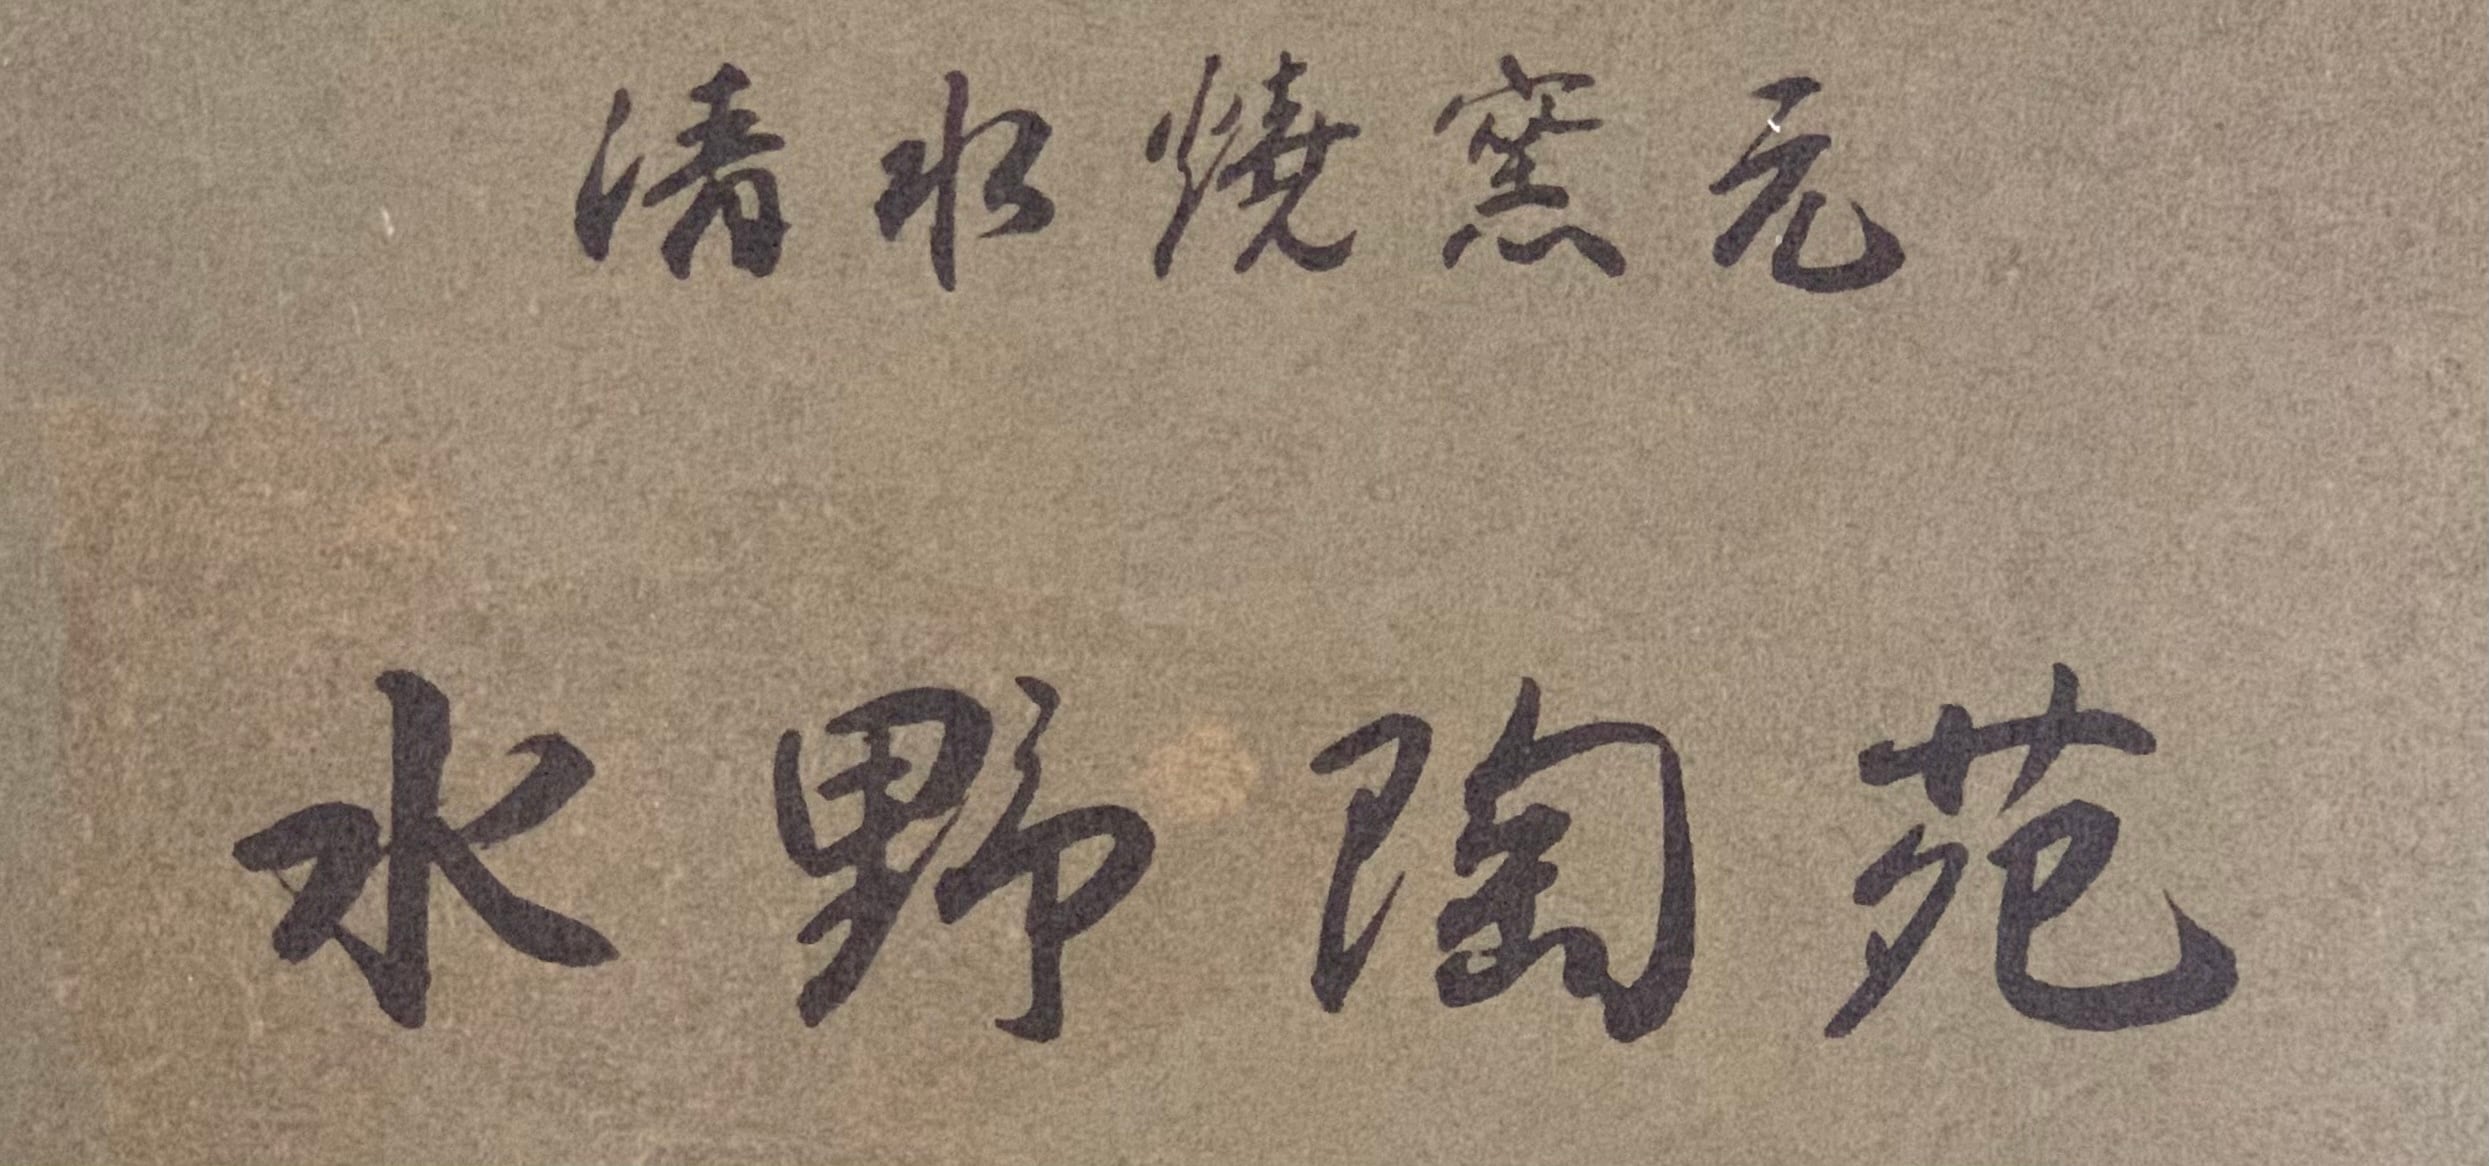 清水燒窯元
水野陶苑